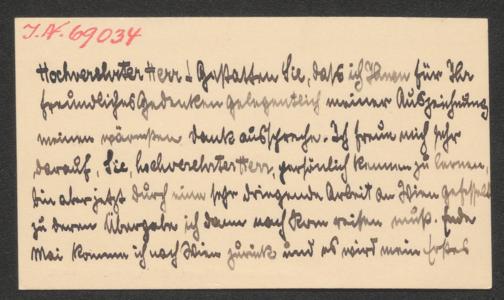 I.N. 69034
Hochverehrter Herr! Gestatten Sie, daß ich Ihnen für Ihr
freundliches Gedenken gelegentlich meiner Auszeichnung
meinen wärmsten Dank ausspreche. Ich freue mich sehr
darauf, Sie, hochverehrter Herr, persönlich kennen zu lernen,
bin aber jetzt durch eine sehr dringende Arbeit an Wien gefesselt
zu deren Übergabe ich dann nach Rom reisen muß. Ende
Mai komme ich nach Wien zurück und es wird mein Erstes